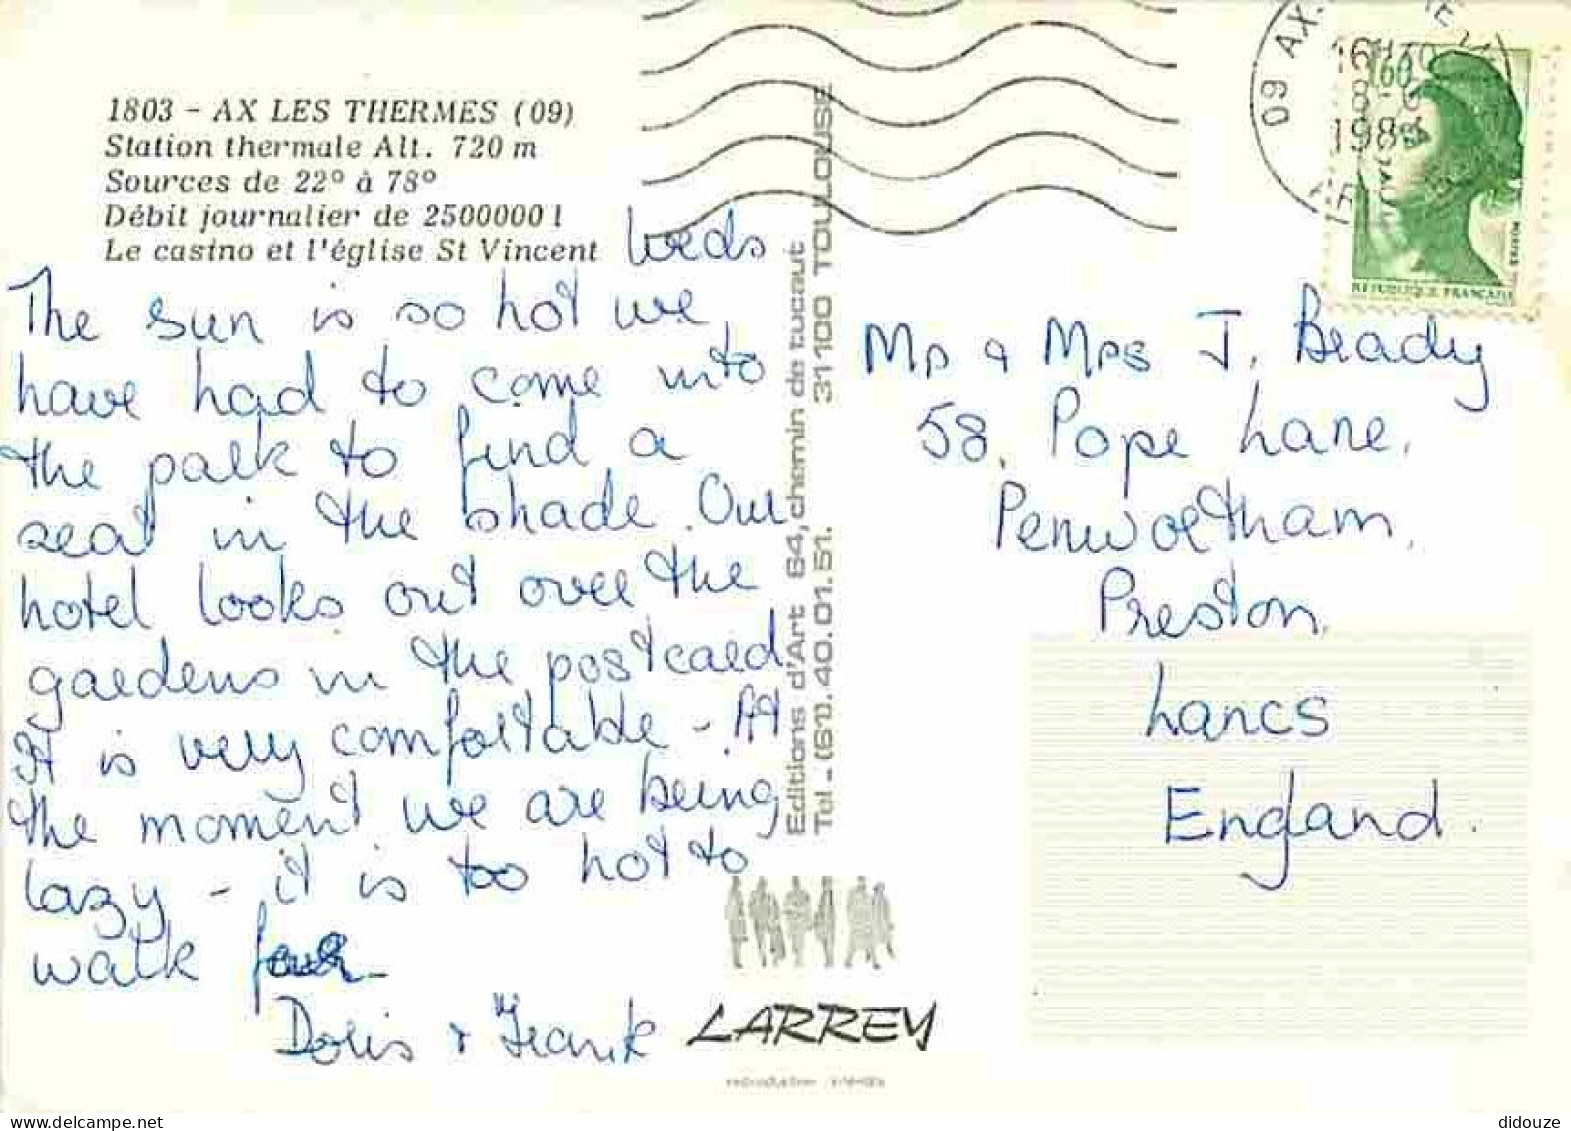 1803 - AX LES THERMES (09)
Station thermale Alt. 720 m
Sources de 22° à 78°
Débit journalier de 2500000 l
Le casino et l'église St Vincent
Weds
The sun is so hot we
have had to come into
the park to find a
seat in the shade. Our
hotel looks out over the
gardens in the postcard
It is very comfortable - At
the moment we are being
lazy - it is too hot to
walk far -
Doris & Frank
Editions d'Art 64, chemin de tucaut
Tel - (61). 40.01.51. 31100 TOULOUSE
LARREY
09 AX-
16H30
8
198
1,60
POSTES
REPUBLIQUE FRANÇAISE
Mr & Mrs J. Brady
58, Pope Lane,
Penwortham,
Preston,
Lancs
England.
didouze